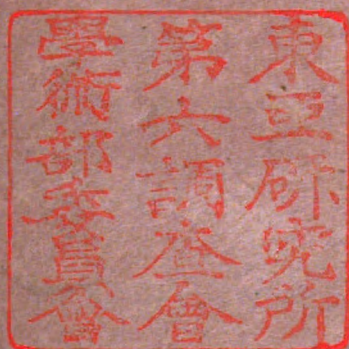 東亞研究所
第六調査會
學術部委員會